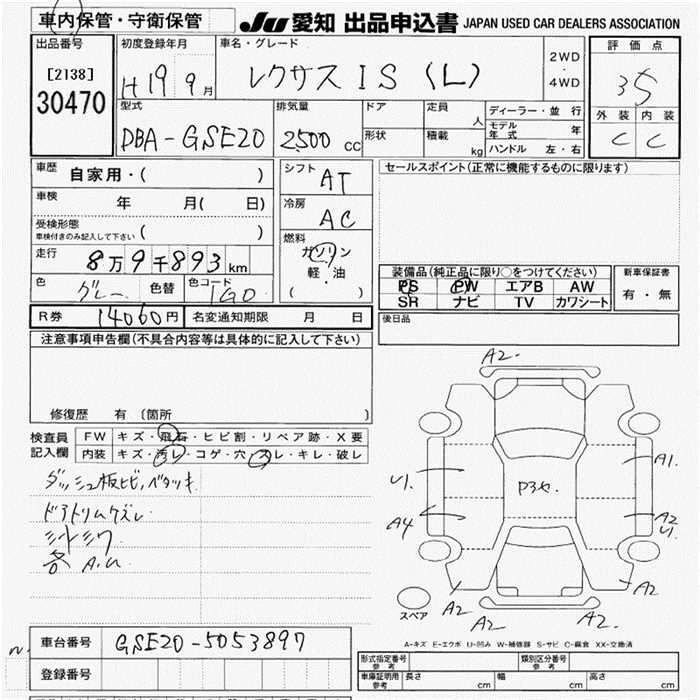 車内保管・守衛保管 JU 愛知 出品申込書 JAPAN USED CAR DEALERS ASSOCIATION
出品番号 初度登録年月 車名・グレード 2WD ・ 4WD 評価点
[2138] 30470 H19 9月 レクサス IS (L) 35
型式 排気量 ドア 定員 人 ディーラー・並行 外装 内装
DBA-GSE20 2500 cc 形状 積載 kg モデル年式 年 C C
ハンドル 左・右
車歴 自家用・( ) シフト AT セールスポイント(正常に機能するものに限ります)
車検 年 月( 日) 冷房 AC
受検形態 車検付きのみ記入して下さい ( ) 燃料 ガソリン
走行 8万9千893km 軽・油 ( )
装備品(純正品に限り○をつけてください) 新車保証書
色 グレー 色替 色コード 1G0 PS PW エアB AW 有・無
SR ナビ TV カワシート
R券 14060円 名変通知期限 月 日 後日品
注意事項申告欄(不具合内容等は具体的に記入して下さい)
修復歴 有 〔箇所 〕
検査員記入欄 FW キズ・飛石・ヒビ割・リペア跡・X要
内装 キズ・汚レ・コゲ・穴・スレ・キレ・破レ
ダッシュ板ヒビ,ベタツキ
ドアトリムケズレ
シートシワ
各 A.U
A2.
U1.
A4
P3セ.
A1.
A2
U1.
A2
A2
A2
A2
スペア
A-キズ E-エクボ U-凹み W-補修跡 S-サビ C-腐食 XX-交換済
車台番号 GSE20-5053897
登録番号
形式指定番号 参考 類別区分番号 参考
車庫証明用 参考 長さ cm 幅 cm 高さ cm